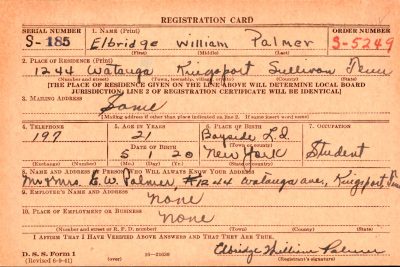 REGISTRATION CARD
SERIAL NUMBER 1. NAME (Print) ORDER NUMBER
S-185 Elbridge William Palmer S-5249
(First) (Middle) (Last)
2. PLACE OF RESIDENCE (Print)
1244 Watauga Kingsport Sullivan Tenn
(Number and street) (Town, township, village, or city) (County) (State)
[THE PLACE OF RESIDENCE GIVEN ON THE LINE ABOVE WILL DETERMINE LOCAL BOARD
JURISDICTION; LINE 2 OF REGISTRATION CERTIFICATE WILL BE IDENTICAL]
3. MAILING ADDRESS
Same
[Mailing address if other than place indicated on line 2. If same insert word same]
4. TELEPHONE 5. AGE IN YEARS 6. PLACE OF BIRTH 7. OCCUPATION
197 21 Bayside L.I.
DATE OF BIRTH (Town or county)
5 20 New York Student
(Exchange) (Number) (Mo.) (Day) (Yr.) (State or country)
8. NAME AND ADDRESS OF PERSON WHO WILL ALWAYS KNOW YOUR ADDRESS
Mr & Mrs. E. W. Palmer, 1244 Watauga ave, Kingsport,
9. EMPLOYER'S NAME AND ADDRESS
None
10. PLACE OF EMPLOYMENT OR BUSINESS
None
(Number and street or R. F. D. number) (Town) (County) (State)
I AFFIRM THAT I HAVE VERIFIED ABOVE ANSWERS AND THAT THEY ARE TRUE.
Elbridge William Palmer
D. S. S. Form 1 (Registrant's signature)
(Revised 6-9-41) (over)